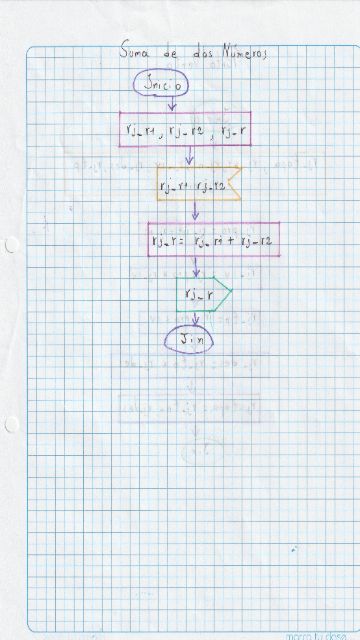 Suma de dos Números
Inicio
rj_r1, rj_r2, rj_r
rj_r1 rj_r2
rj_r = rj_r1 + rj_r2
rj_r
Fin